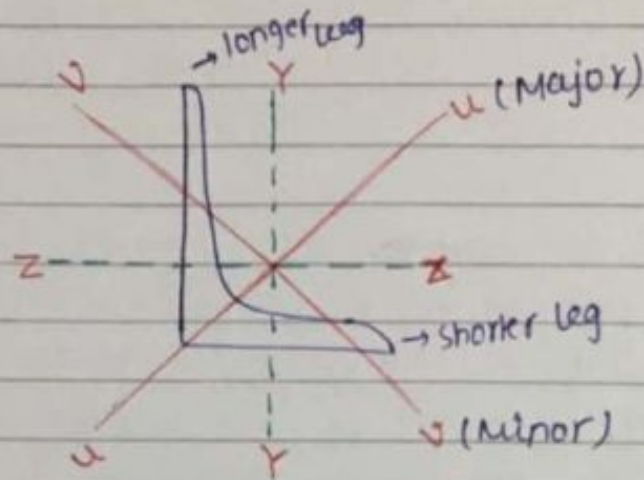 → longer leg
V Y U (Major)
Z Z
→ shorter leg
U Y V (Minor)